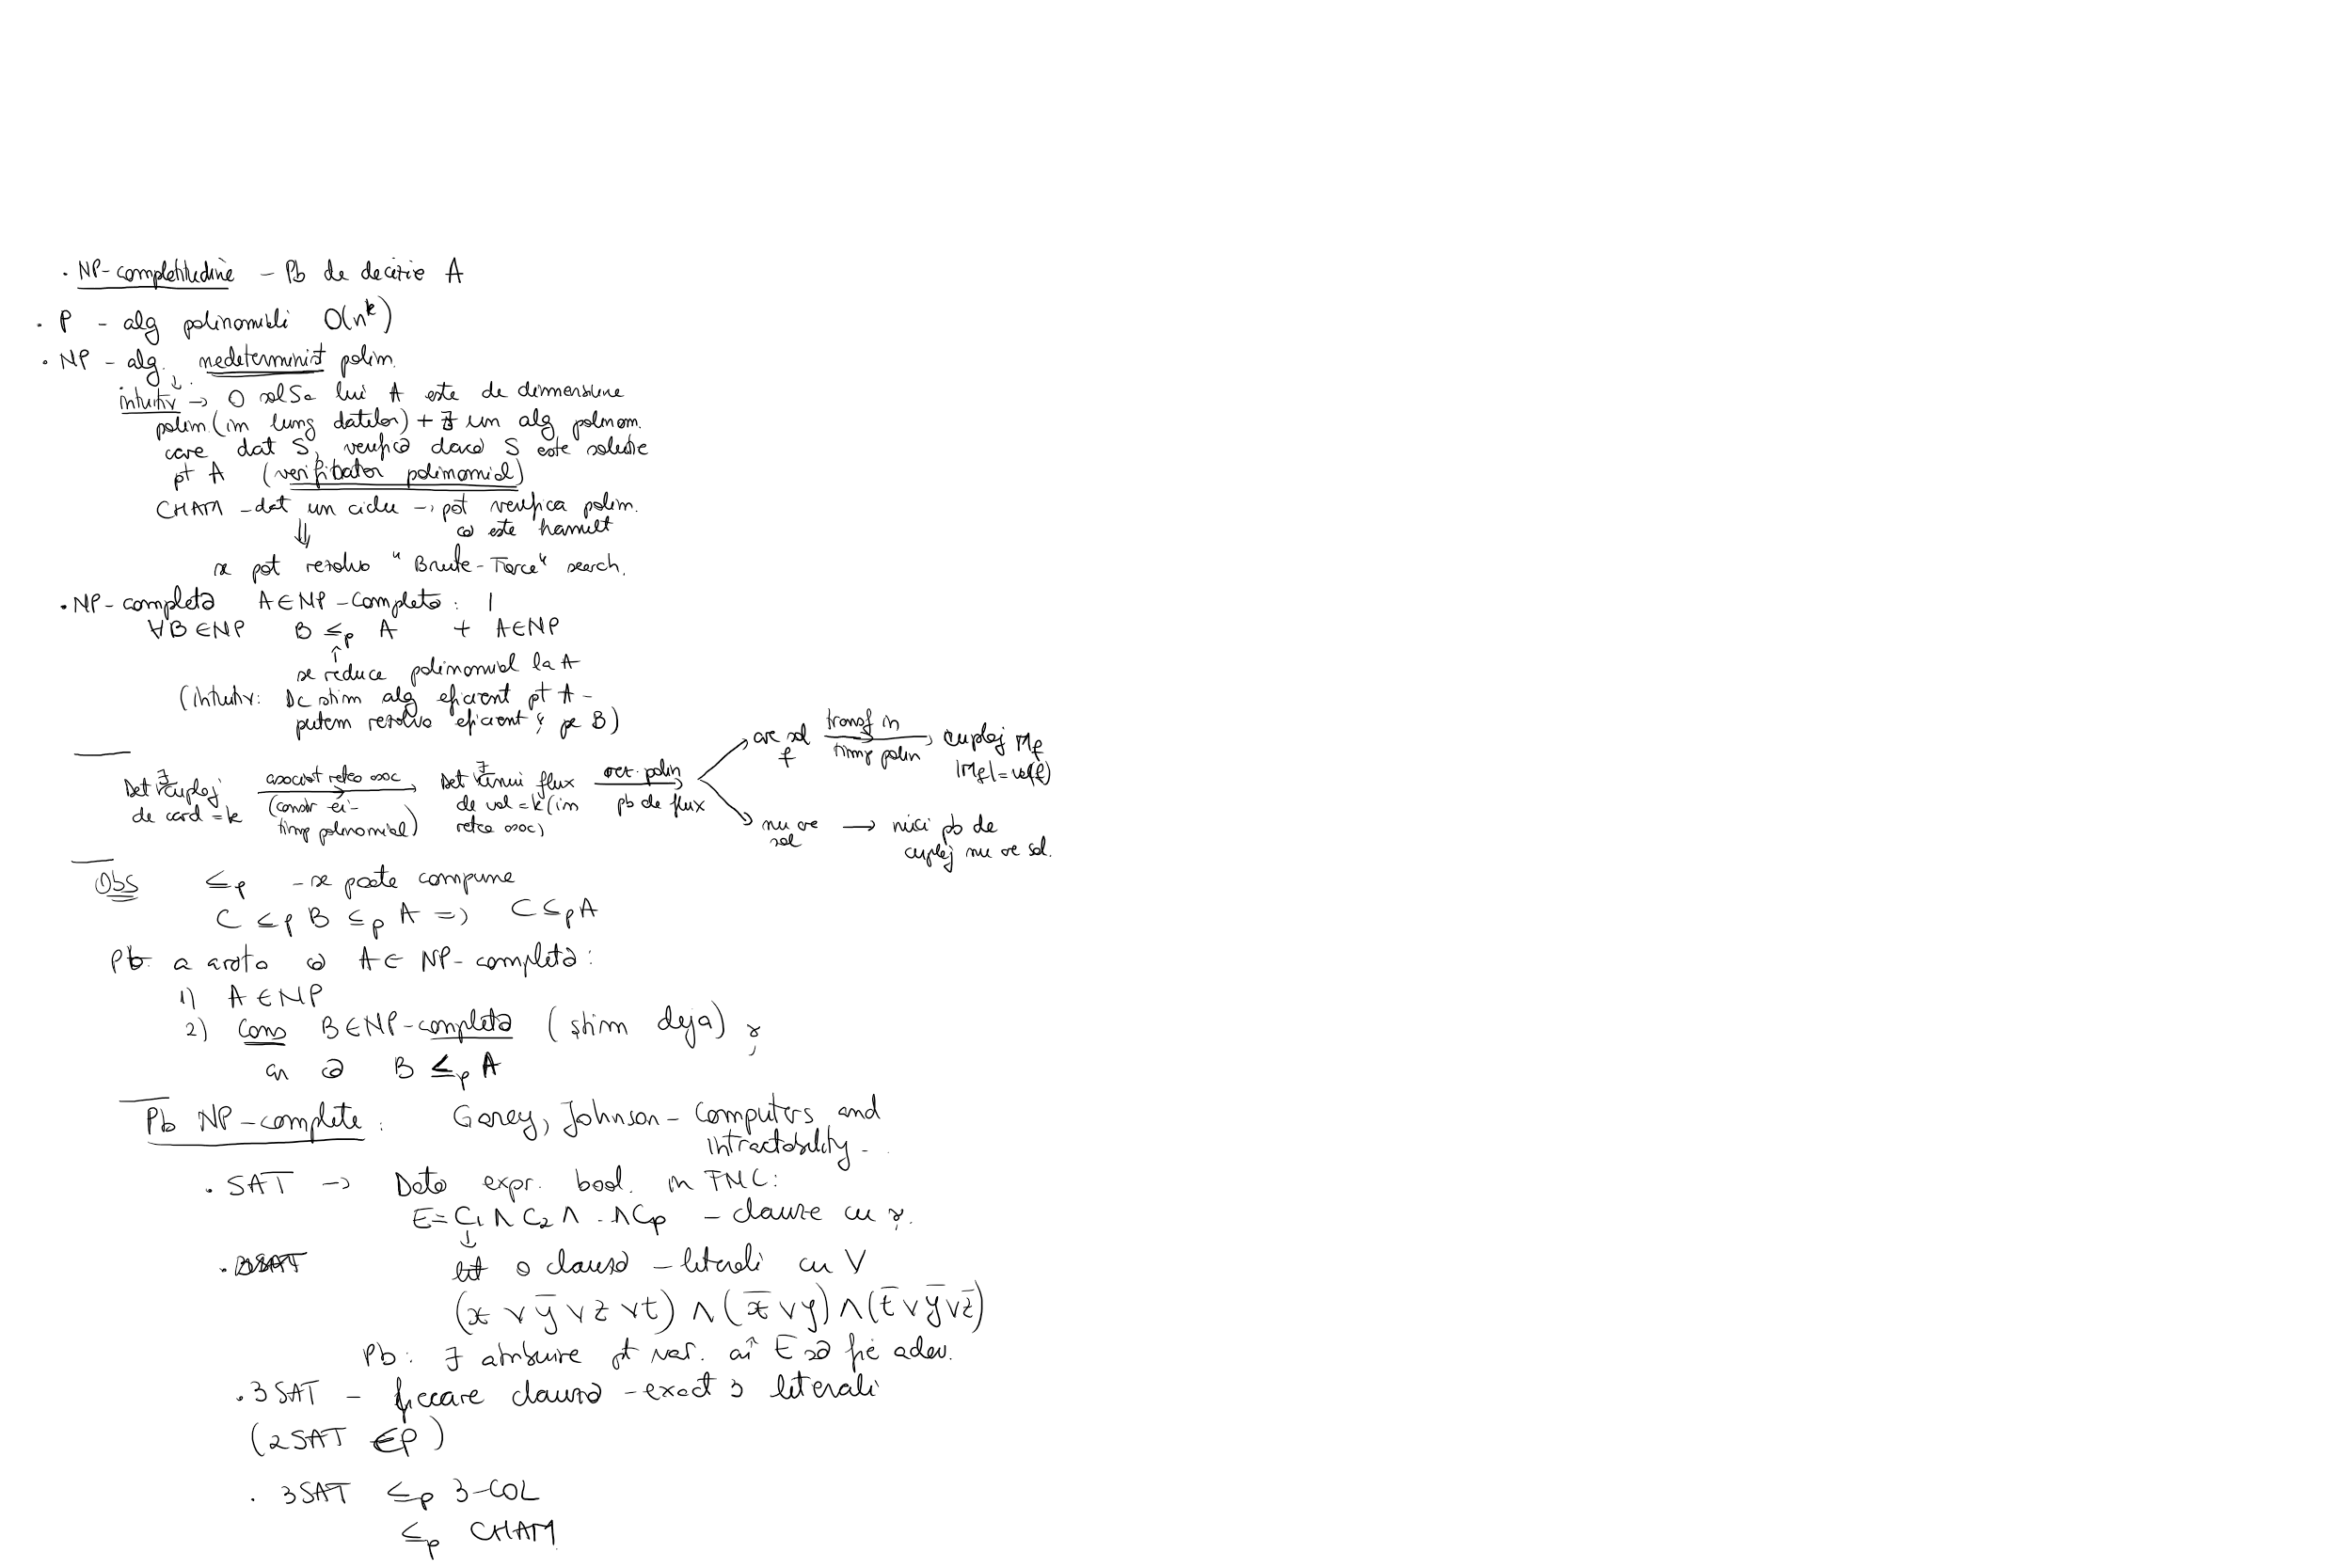 · NP-completitudine – Pb de decizie A
· P – alg polinomiali O(n^k)
· NP – alg. nedeterminist polin.
intuitiv → O sol S a lui A este de dimensiune
polin (în lung datelor) + ∃ un alg polinom.
care dat S, verifică dacă S este soluție
pt A (verificator polinomial)
CHAM – dat un ciclu → pot verifica polin.
că este hamilt
⇓
se pot rezolva "Brute-Force" search.
· NP-completă A∈NP-Completă :
∀B∈NP B ≤p A + A∈NP
↑
se reduce polinomial la A
(intuitiv: Dc știm alg eficient pt A –
putem rezolva eficient și pe B)
Det ∃ cuplaj de card = k
asociat rețea asoc (constr ei – timp polinomial)
Det ∃ unui flux de val = k (în rețea asoc)
rez. polin pb de flux
are sol f
transf în timp polin
cuplaj Mf |Mf| = val(f)
nu are sol → nici pb de cuplaj nu are sol.
Obs ≤p – se poate compune
C ≤p B ≤p A ⇒ C ≤p A
Pt a arăta că A ∈ NP-completă :
1) A ∈ NP
2) Cons B∈NP-completă (știm deja) și
ar că B ≤p A
Pb NP-complete : Garey, Johnson – Computers and
Intractability
· SAT → Dată expr. bool. în FNC:
E = C1 ∧ C2 ∧ .. ∧ Cp – clauze cu și.
↓
o clauză – literali cu ∨
(x ∨ ȳ ∨ z ∨ t) ∧ (x̄ ∨ y) ∧ (t̄ ∨ ȳ ∨ z̄)
Pb: ∃ atribuire pt var. aî E să fie adev.
· 3SAT – fiecare clauză – exact 3 literali
(2SAT ∈ P)
· 3SAT ≤p 3-COL
≤p CHAM